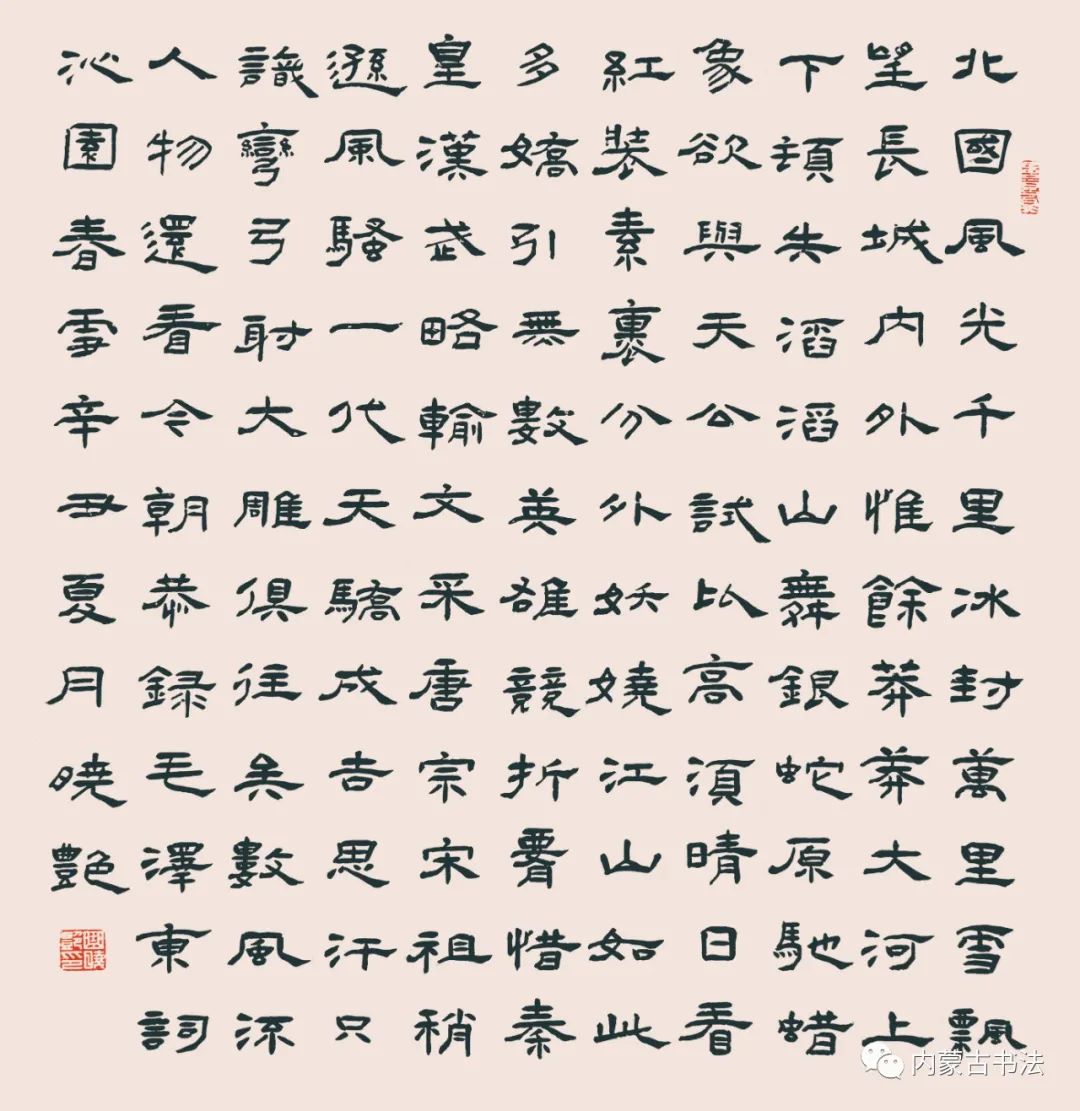 北國風光千里冰封萬里雪飄
望長城内外惟餘莽莽大河上
下頓失滔滔山舞銀蛇原馳蜡
象欲與天公試比高須晴日看
紅裝素裹分外妖嬈江山如此
多嬌引無數英雄競折腰惜秦
皇漢武略輸文采唐宗宋祖稍
遜風騷一代天驕成吉思汗只
識彎弓射大雕俱往矣數風流
人物還看今朝恭録毛澤東詞
沁園春雪辛丑夏月曉艷
内蒙古书法